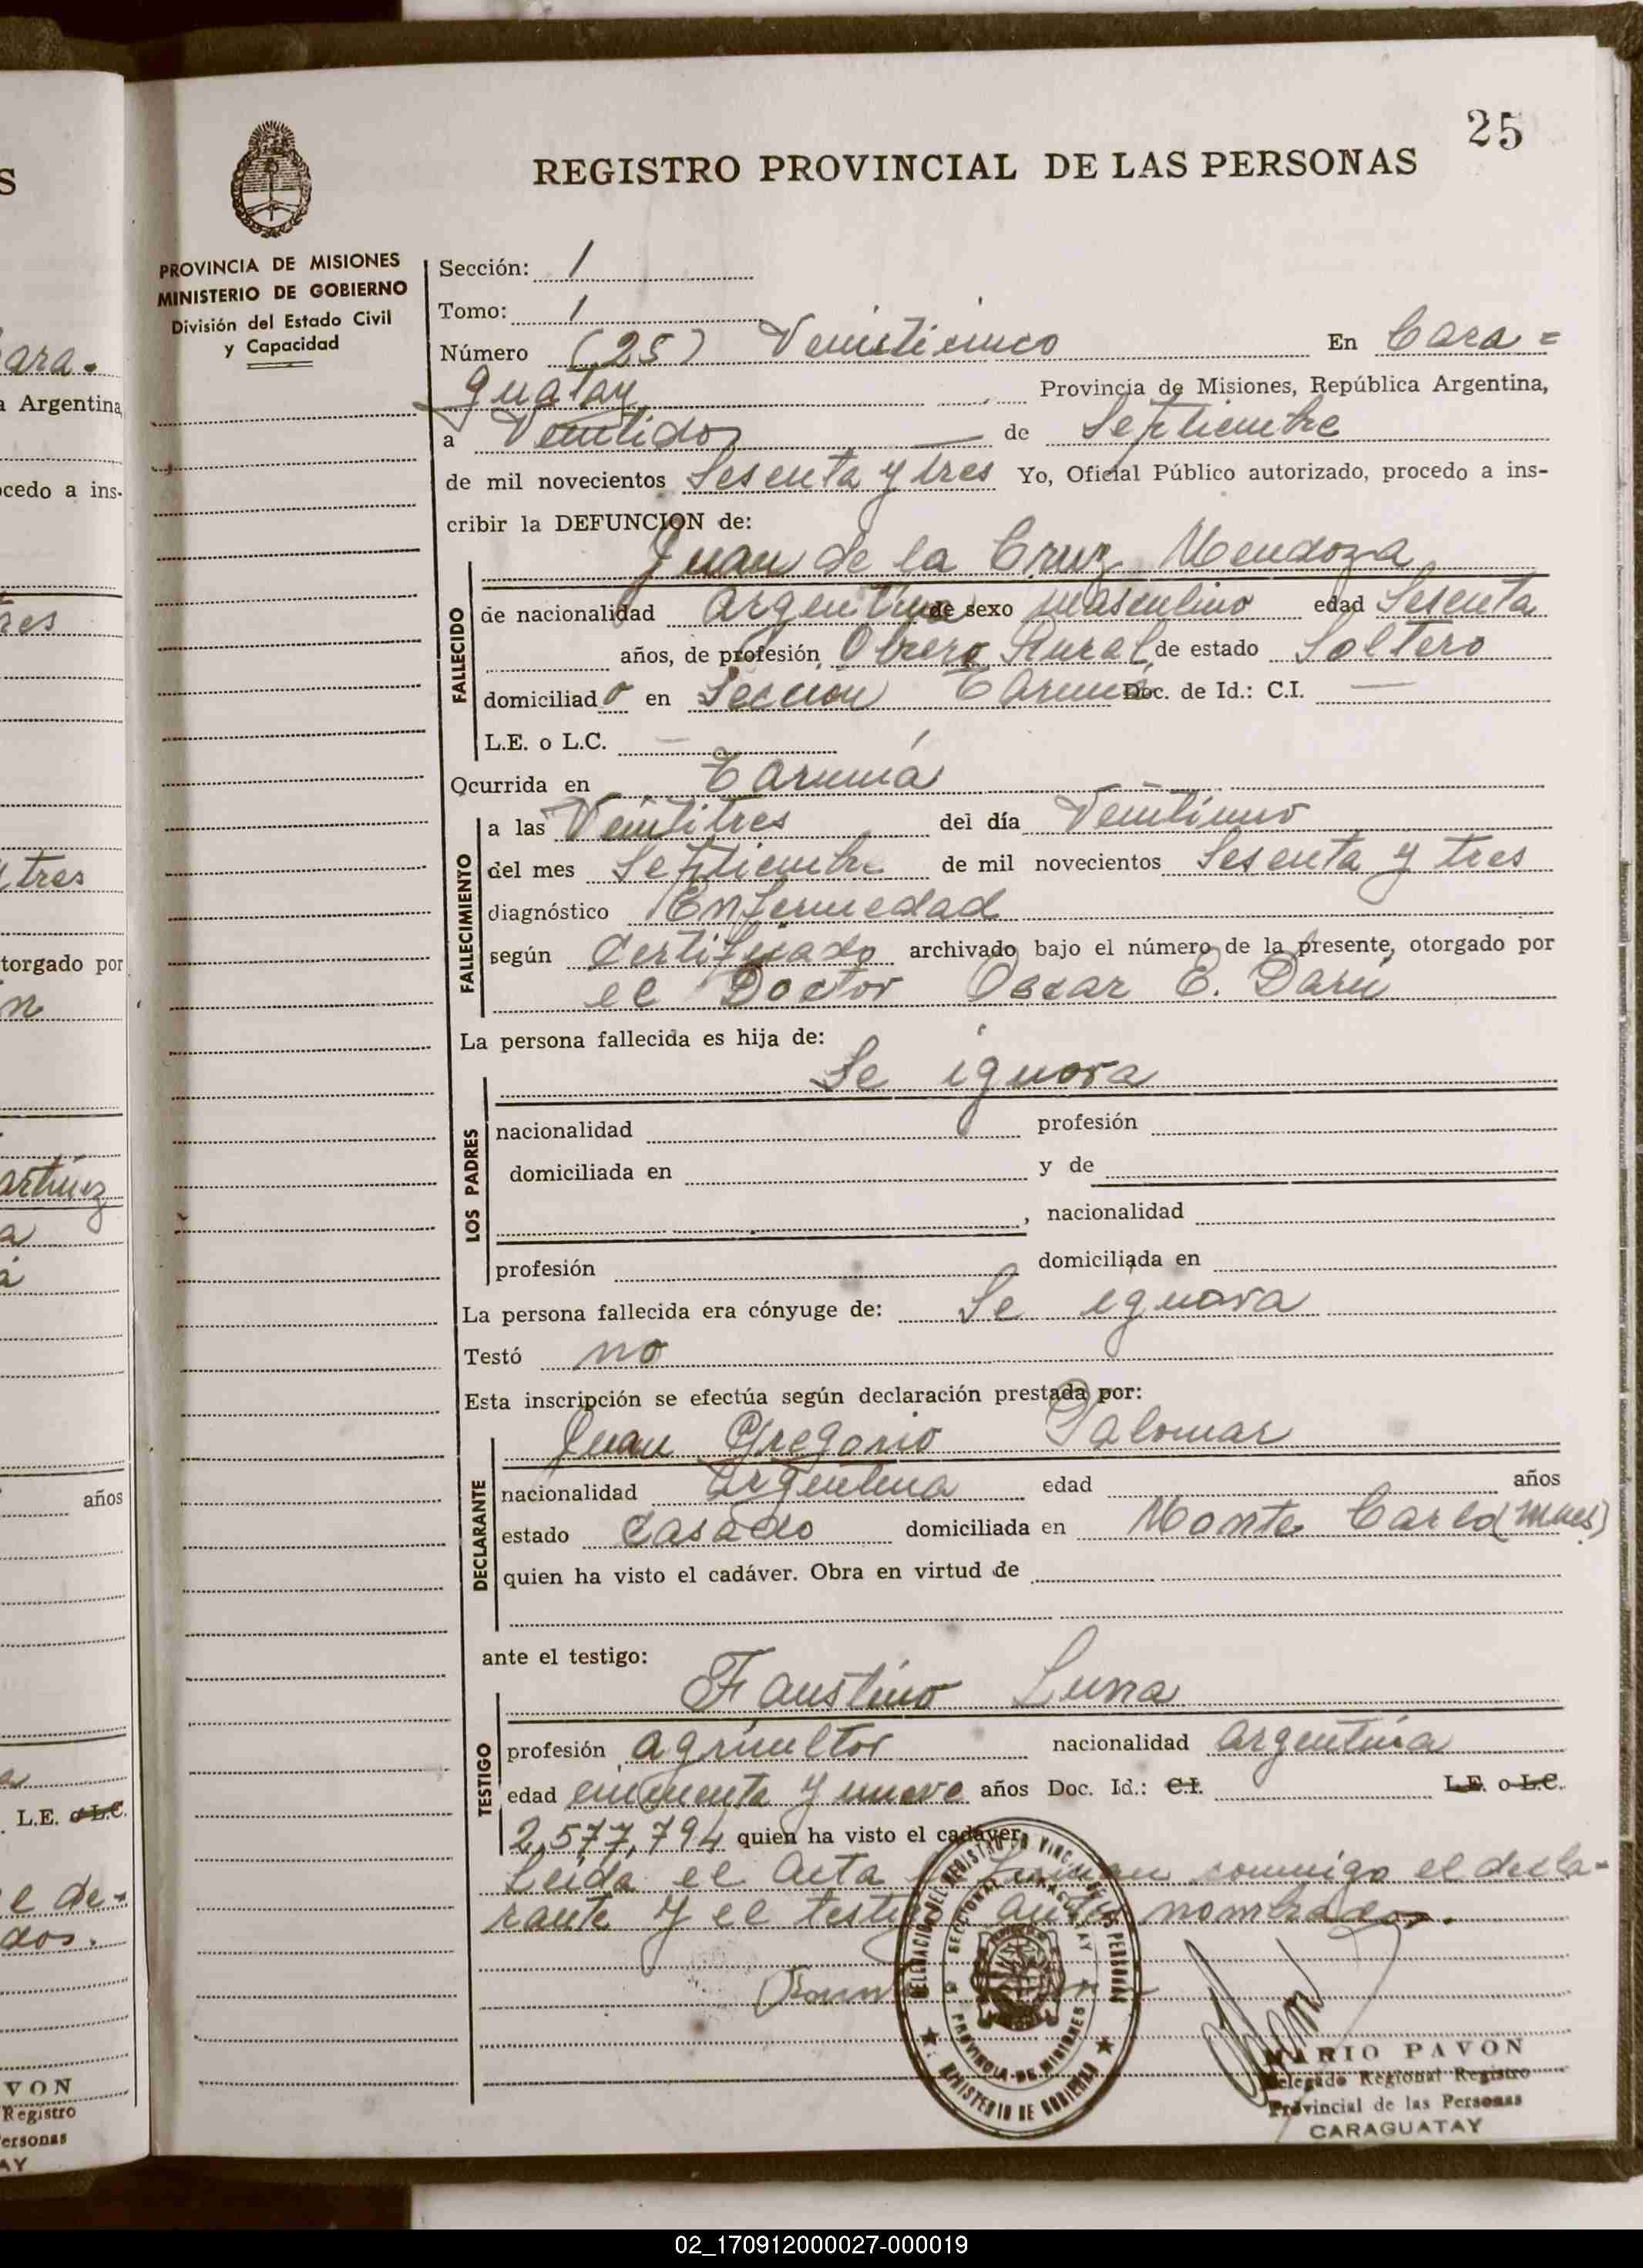 25
REGISTRO PROVINCIAL DE LAS PERSONAS
PROVINCIA DE MISIONES
MINISTERIO DE GOBIERNO
División del Estado Civil
y Capacidad
Sección: 1
Tomo: 1
Número (25) Veinticinco En Cara=
guatay Provincia de Misiones, República Argentina,
a Veintidos de Septiembre
de mil novecientos Sesenta y tres Yo, Oficial Público autorizado, procedo a ins-
cribir la DEFUNCION de:
Juan de la Cruz Mendoza
FALLECIDO
de nacionalidad Argentina de sexo masculino edad Sesenta
años, de profesión Obrero Rural de estado Soltero
domiciliado en Sección Taruma Doc. de Id.: C.I. —
L.E. o L.C. —
Ocurrida en Tarumá
FALLECIMIENTO
a las Veintitres del día Veintiuno
del mes Septiembre de mil novecientos Sesenta y tres
diagnóstico Enfermedad
según Certificado archivado bajo el número de la presente, otorgado por
el Doctor Oscar E. Darú
La persona fallecida es hija de:
Se ignora
LOS PADRES
nacionalidad profesión
domiciliada en y de
, nacionalidad
profesión domiciliada en
La persona fallecida era cónyuge de: Se ignora
Testó no
Esta inscripción se efectúa según declaración prestada por:
Juan Gregorio Palomar
DECLARANTE
nacionalidad Argentina edad años
estado Casado domiciliada en Monte Carlo (Mnes)
quien ha visto el cadáver. Obra en virtud de
ante el testigo:
Faustino Luna
TESTIGO
profesión agricultor nacionalidad argentina
edad cincuenta y nueve años Doc. Id.: C.I. L.E. o L.C.
2,577,794 quien ha visto el cadáver.
Leida el Acta firman conmigo el decla-
rante y el testigo antes nombrados.
DELEGACION DEL REGISTRO PROVINCIAL DE LAS PERSONAS
SECCIONAL CARAGUATAY
PROVINCIA DE MISIONES
MINISTERIO DE GOBIERNO
MARIO PAVON
Delegado Regional Registro
Provincial de las Personas
CARAGUATAY
S
ara.
a Argentina
cedo a ins-
res
tres
torgado por
n
artínez
a
a
años
L.E. o L.C.
e de-
dos.
VON
Registro
ersonas
AY
02_170912000027-000019